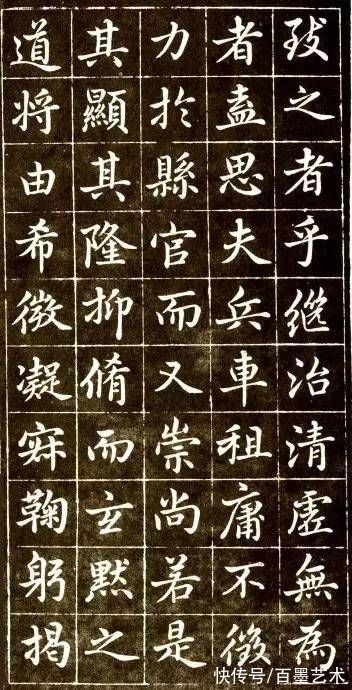 致之者乎継治清虚無為
者盍思夫兵車租庸不徵
力於縣官而又崇尚若是
其顯其隆抑脩而玄默之
道将由希微凝寂鞠躬揭
快传号/百墨艺术